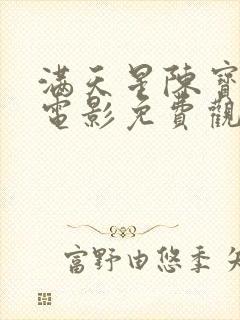 滿天星陳寶
電影免費觀
富野由悠季